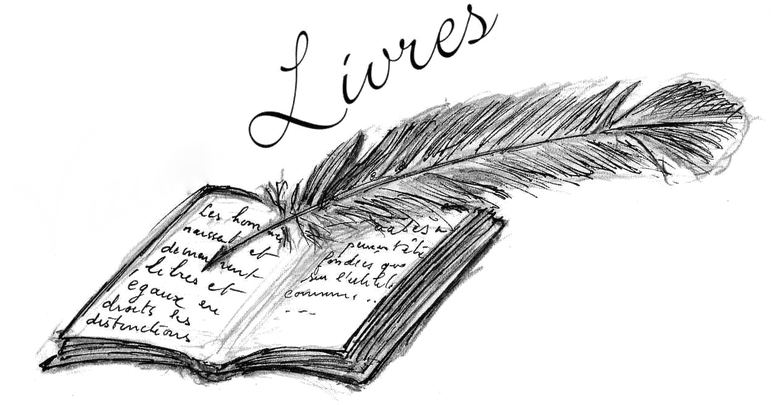 Livres
Les hommes
naissent et
demeurent
libres et
égaux en
droits les
distinctions
peuvent être
fondées que
sur l'utilité
commune...
---